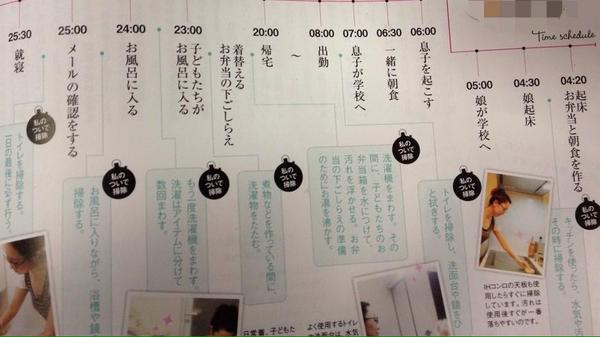 Time schedule
04:20
起床
お弁当と朝食を作る
04:30
娘起床
05:00
娘が学校へ
06:00
息子を起こす
06:30
一緒に朝食
07:00
息子が学校へ
08:00
出勤
〜
20:00
帰宅
着替える
お弁当の下ごしらえ
23:00
子どもたちが
お風呂に入る
24:00
お風呂に入る
25:00
メールの確認をする
25:30
就寝
私の
ついで
掃除
キッチンを使ったら、水気や汚
その時に掃除する。
私の
ついで
掃除
トイレを掃除し、洗面台や鏡をひ
と拭きする。
私の
ついで
掃除
洗濯機をまわす。その
間に、子どもたちのお
弁当箱を水につけて、
汚れを浮かせる。お弁
当の下ごしらえの準備
のためにお湯を沸かす。
私の
ついで
掃除
煮物などを作っている間に、
洗濯物をたたむ。
私の
ついで
掃除
もう一度洗濯機をまわす。
洗濯はアイテムに分けて
数回まわす。
私の
ついで
掃除
お風呂に入りながら、浴槽や鏡
掃除する。
私の
ついで
掃除
トイレを掃除する。
1日の最後に必ず行う。
IHコンロの天板も使
用したらすぐに掃除
しています。汚れは
使用後すぐが一番
落ちやすいのです。
よく使用するトイレ
や洗面台は、水気
日常着、子どもた